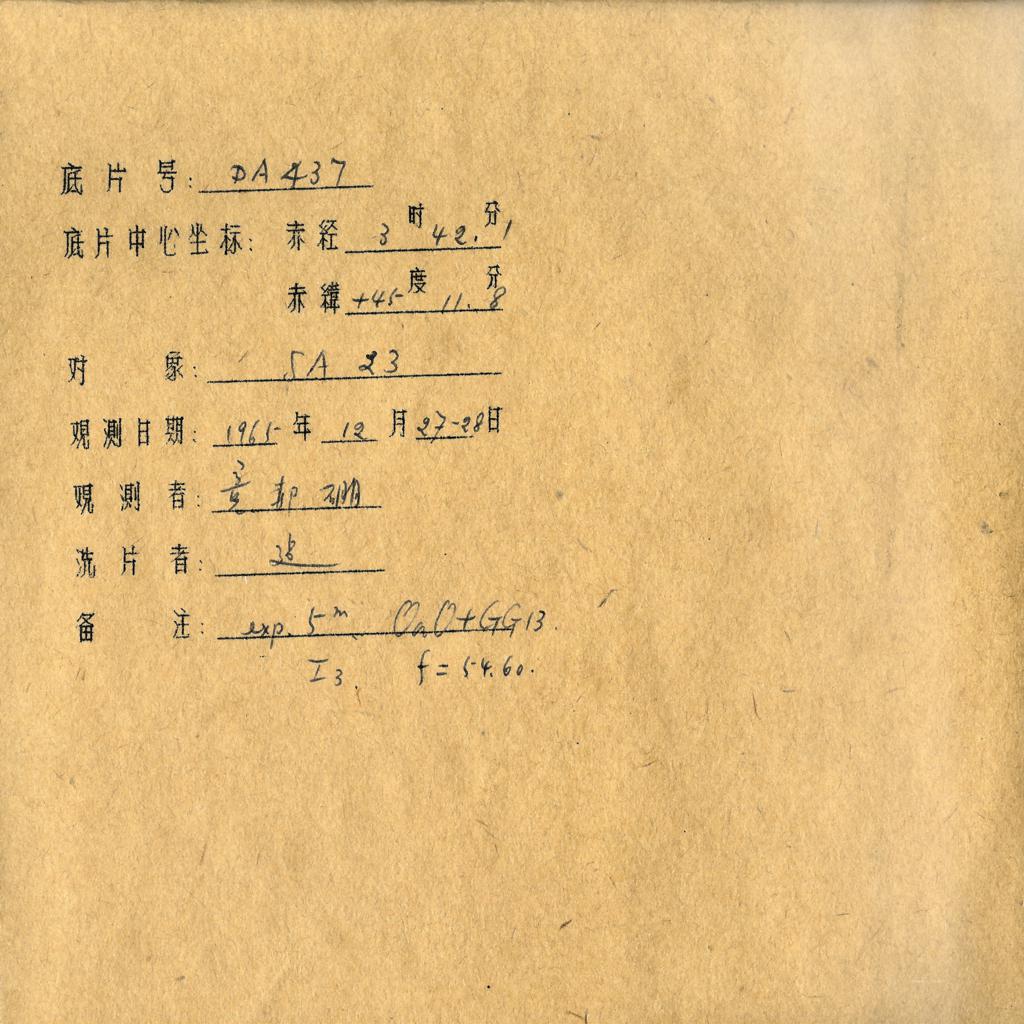 底片号: DA437
底片中心坐标: 赤经 3时42.1分
赤纬 +45度11.8分
对象: SA 23
观测日期: 1965年12月27-28日
观测者:
洗片者:
备注: exp. 5m. OaO+GG13.
I3. f=54.60.